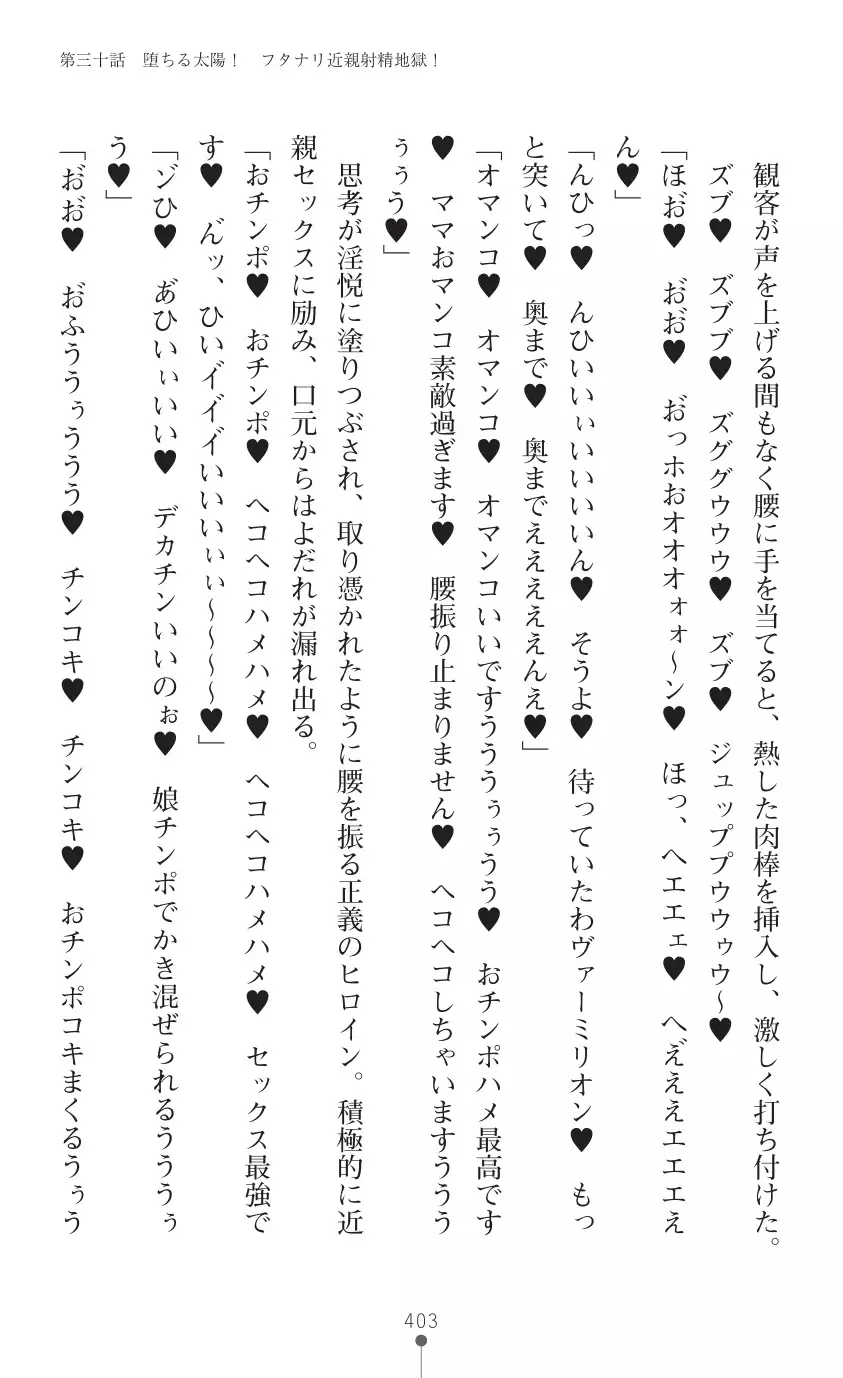 第三十話　堕ちる太陽！　フタナリ近親射精地獄！
観客が声を上げる間もなく腰に手を当てると、熱した肉棒を挿入し、激しく打ち付けた。
ズブ♥　ズブブ♥　ズググウウウ♥　ズブ♥　ジュッププウウゥウ～♥
「ほお゛♥　お゛お゛♥　お゛っホおオオオォォ～ン♥　ほっ、へエエェ♥　へえ゛ええエエエえ
ん♥」
「んひっ♥　んひいいぃいいいいん♥　そうよ♥　待っていたわヴァーミリオン♥　もっ
と突いて♥　奥まで♥　奥までええええええんえ♥」
「オマンコ♥　オマンコ♥　オマンコいいですうううぅぅうう♥　おチンポハメ最高です
♥　ママおマンコ素敵過ぎます♥　腰振り止まりません♥　ヘコヘコしちゃいますううう
ぅぅう♥」
思考が淫悦に塗りつぶされ、取り憑かれたように腰を振る正義のヒロイン。積極的に近
親セックスに励み、口元からはよだれが漏れ出る。
「おチンポ♥　おチンポ♥　ヘコヘコハメハメ♥　ヘコヘコハメハメ♥　セックス最強で
す♥　ん゛ッ、ひいイ゛イ゛イ゛いいいぃぃ～～～～♥」
「ゾひ♥　あ゛ひいぃいい♥　デカチンいいのぉ♥　娘チンポでかき混ぜられるうううぅ
う♥」
「お゛お゛♥　お゛ふううぅううう♥　チンコキ♥　チンコキ♥　おチンポコキまくるうぅう
403